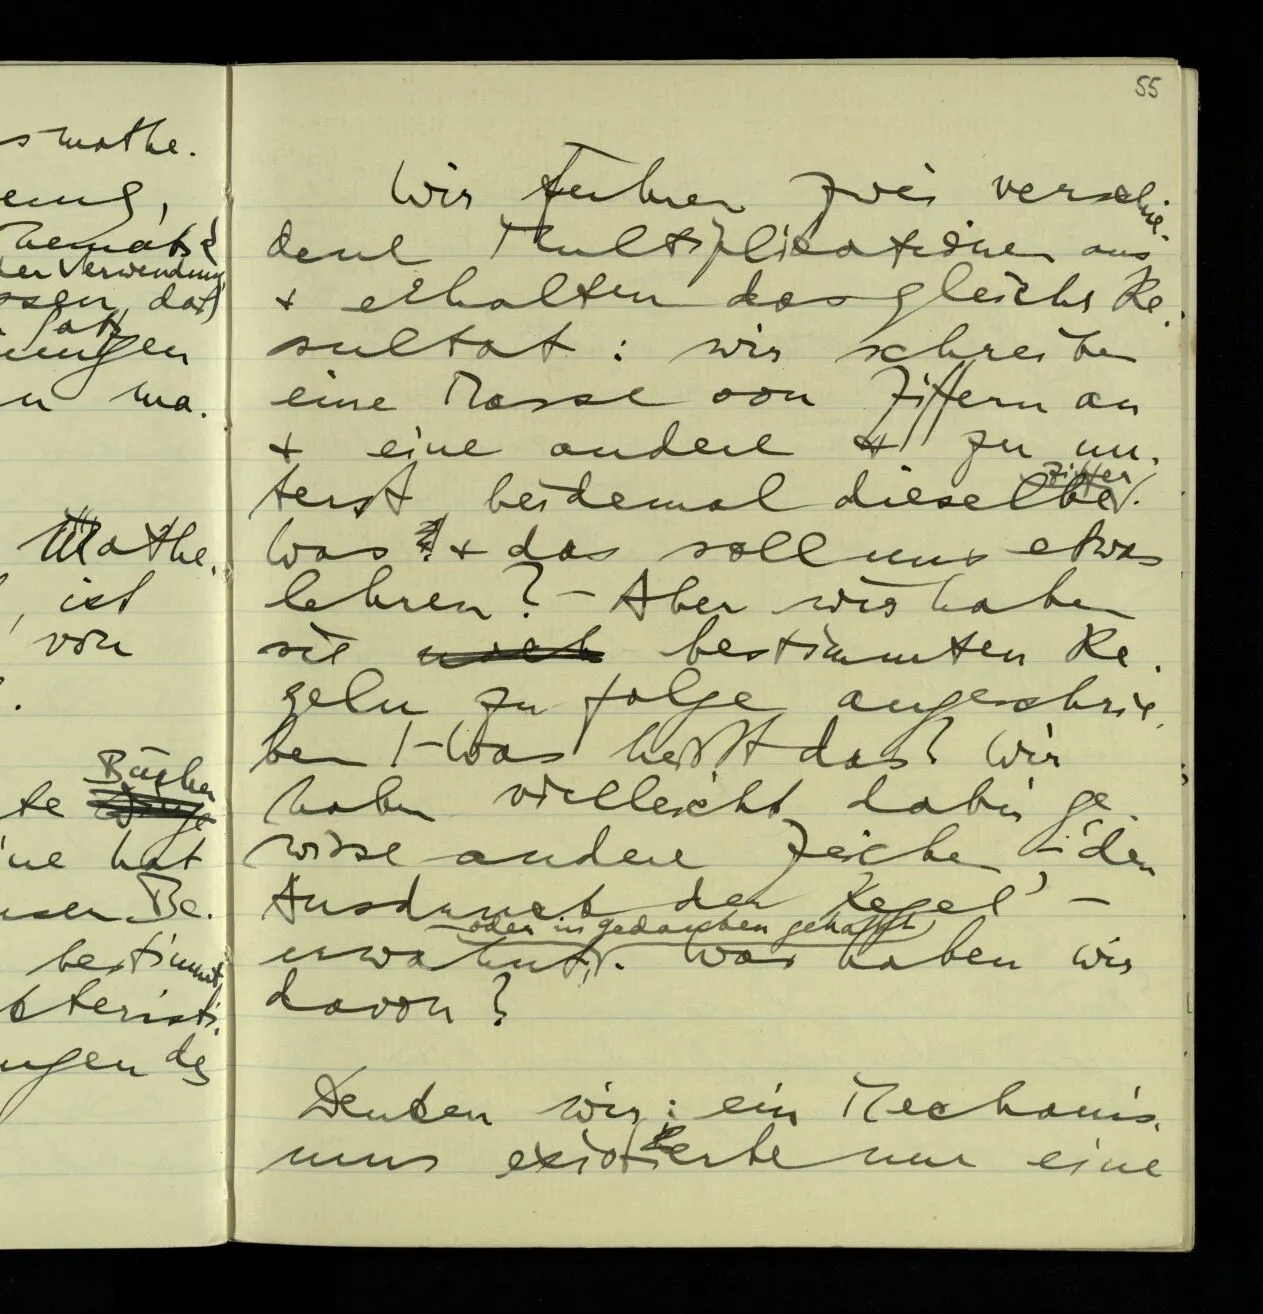 s mathe.
eung,
hemati¿
der Verwendung
ssen, daß
Satz
ungen
n ma.
Mathe.
, ist
von
Bücher
te Dinge
ine hat
user Be.
bestimmt
kteristi.
ungen des
55
Wir führen zwei verschie-
dene Multiplikationen aus
+ erhalten das gleiche Re.
sultat: wir schreiben
eine Masse von Ziffern an
+ eine andere + zu un.
Ziffer
terst beidemal dieselbe.
Was? + das soll uns etwas
lehren? – Aber wir haben
sie nach bestimmten Re.
geln zu folge angeschrie.
ben! – Was heißt das? Wir
haben vielleicht dabei ge.
wisse andere Zeichen, – 'den
Ausdruck der Regel' –
– oder in gedanken gehabt
erwähnt. Was haben wir
davon?
Denken wir: ein Mechanis.
mus existierte nur eine